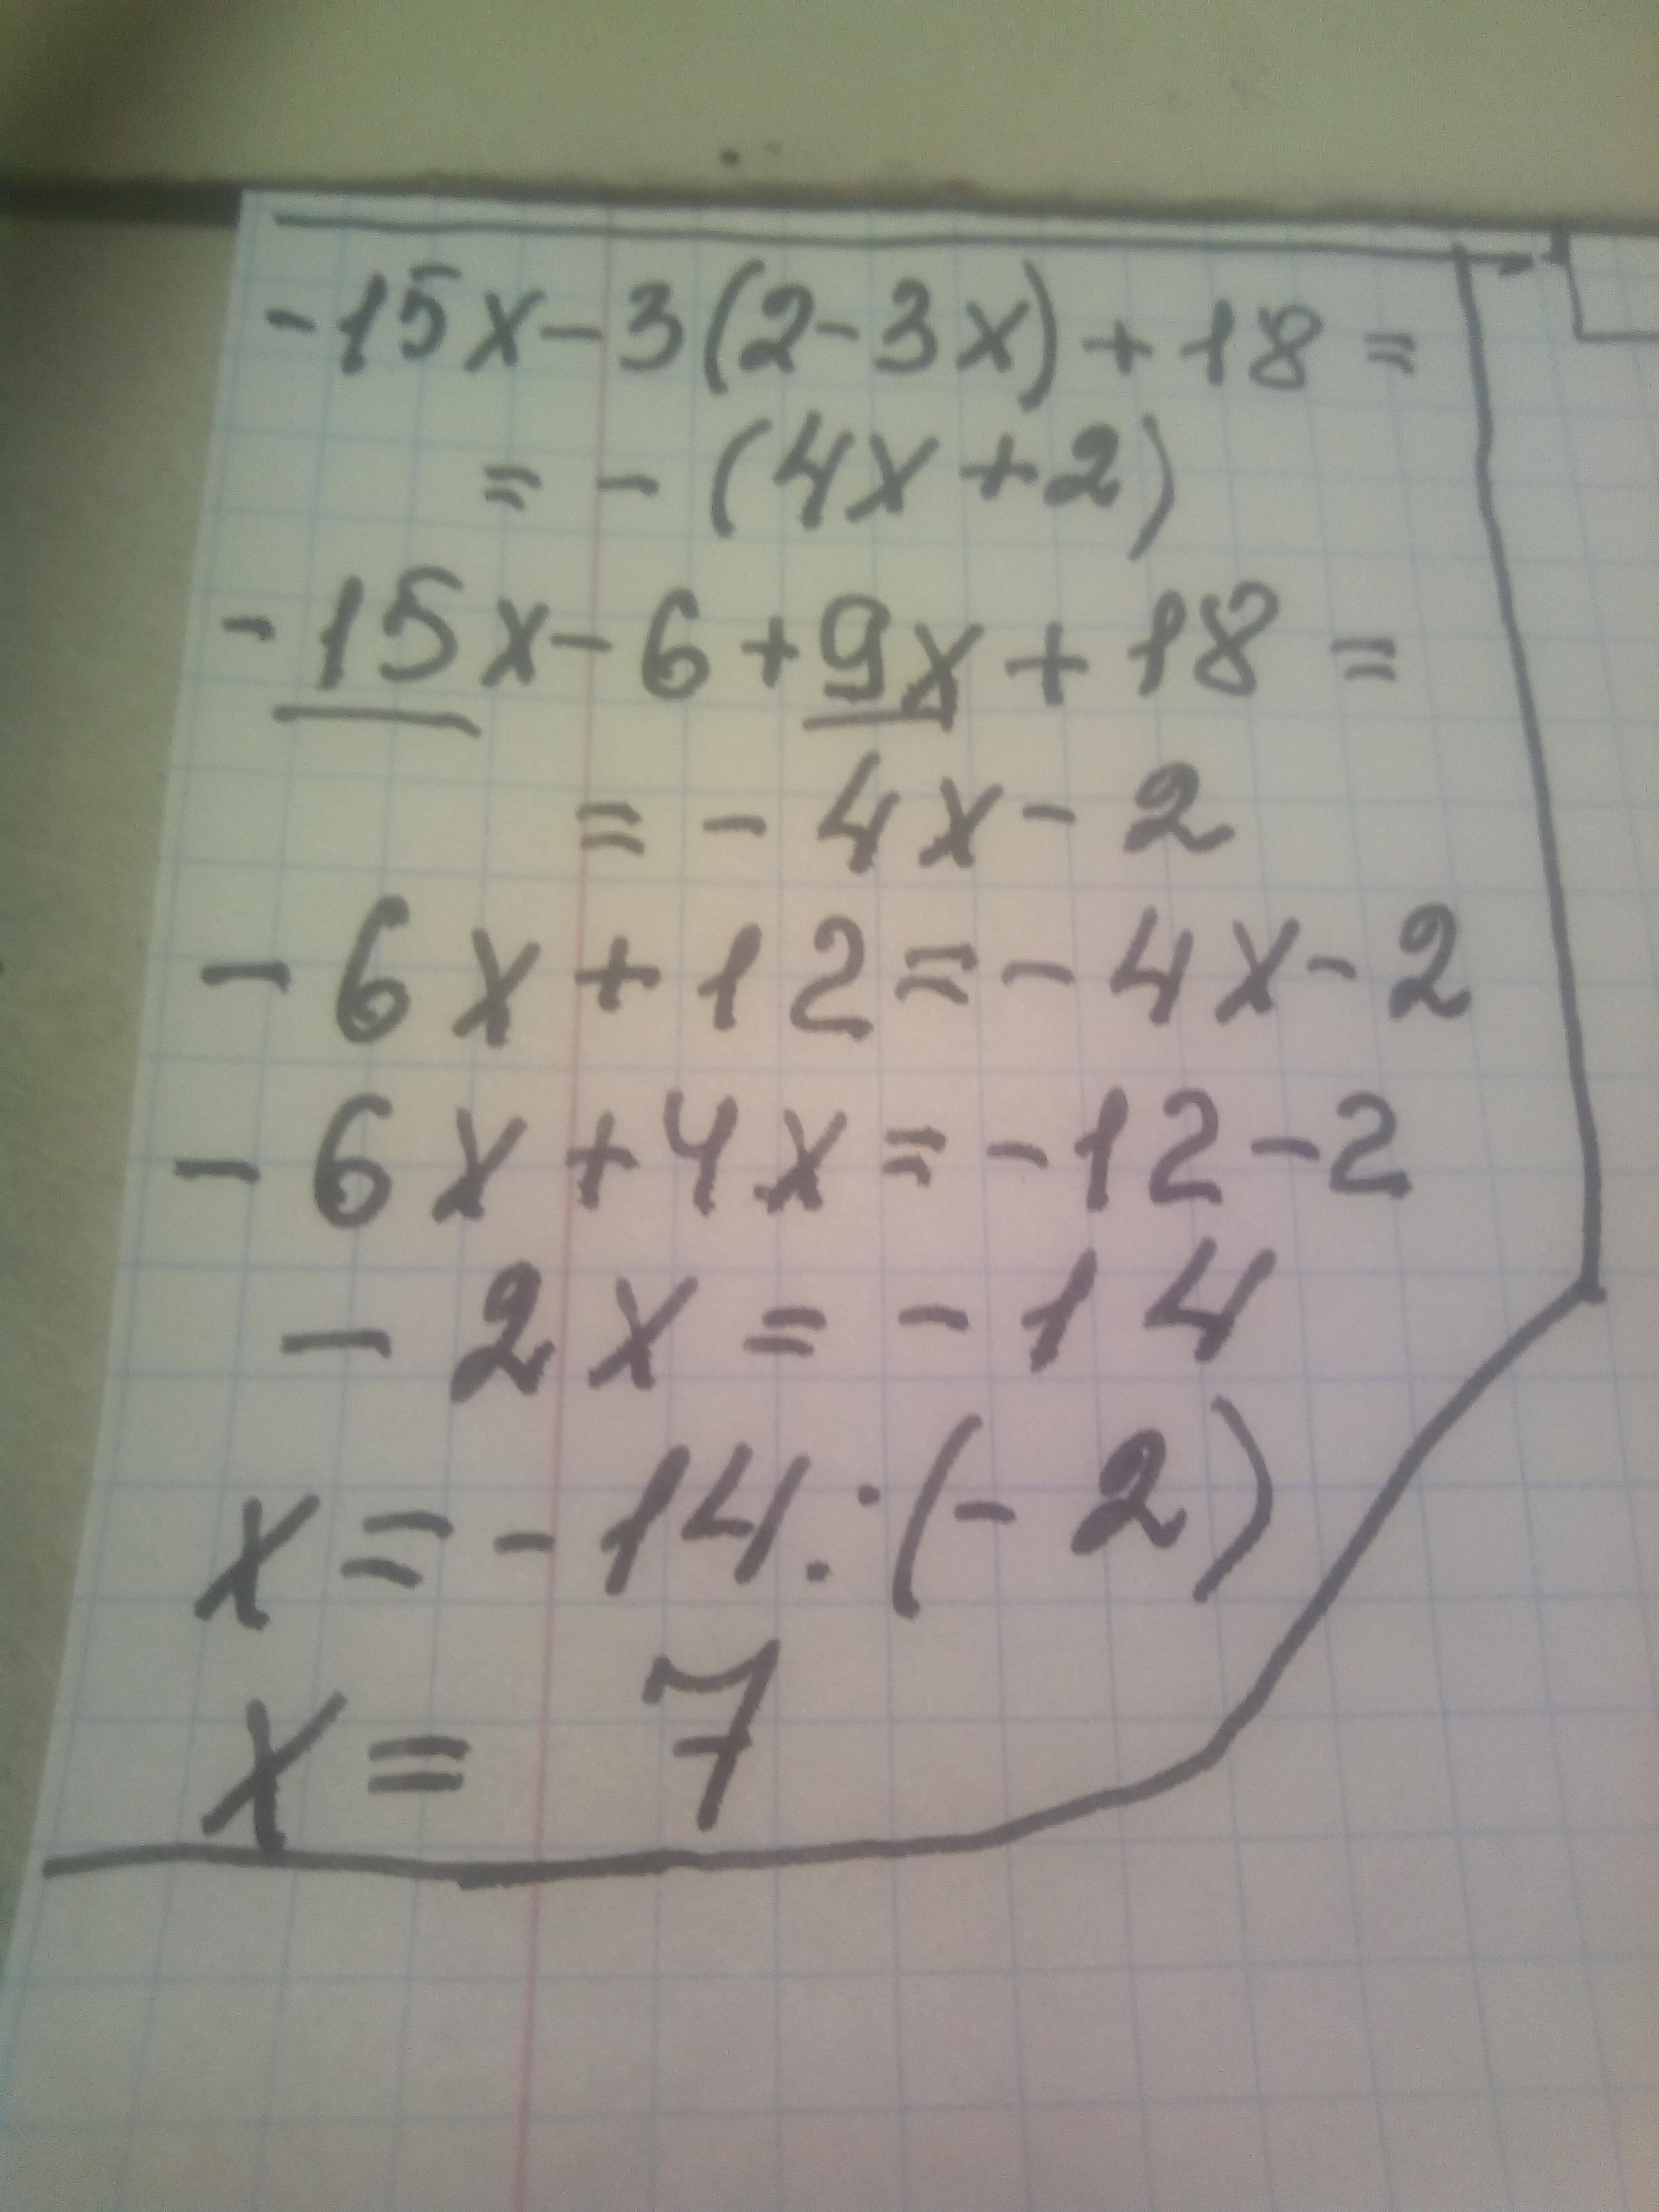 -15x-3(2-3x)+18=
=-(4x+2)
-15x-6+9x+18=
=-4x-2
-6x+12=-4x-2
-6x+4x=-12-2
-2x=-14
x=-14:(-2)
x=7